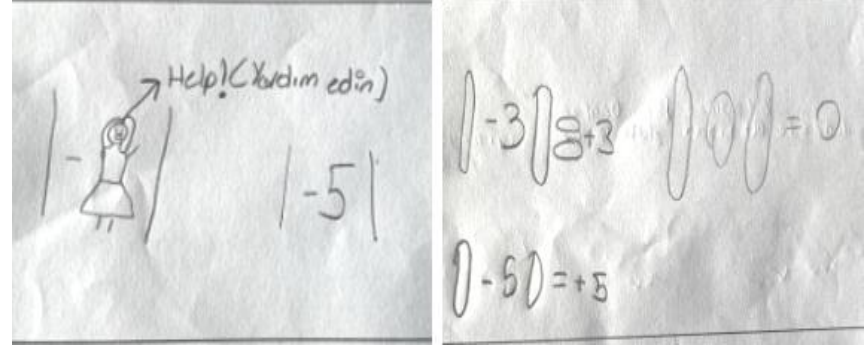 Help! (Yardım edin)
|- |
|-5|
|-3| = +3
|0| = 0
|-5| = +5